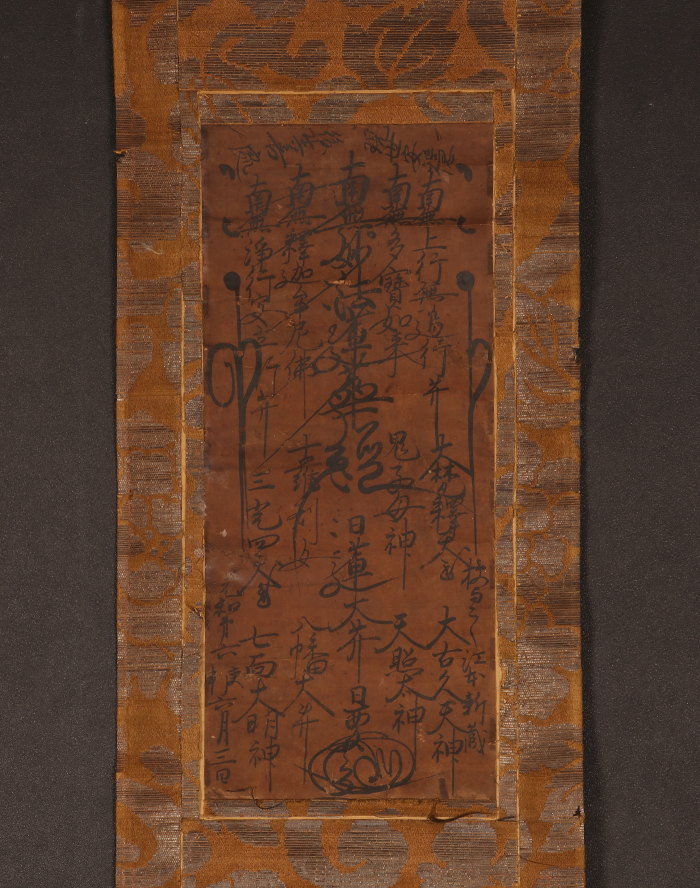 南無上行無邊行菩
大梵帝釋天王
大古久天神
授与之 江本新蔵
南無多寶如来
鬼子母神
天照太神
南無妙法蓮華經
日蓮大菩
南無釋迦牟尼佛
十羅刹女
八幡大菩
南無淨行安立行菩
三光四天王
七面大明神
元和第六庚申
六月三日